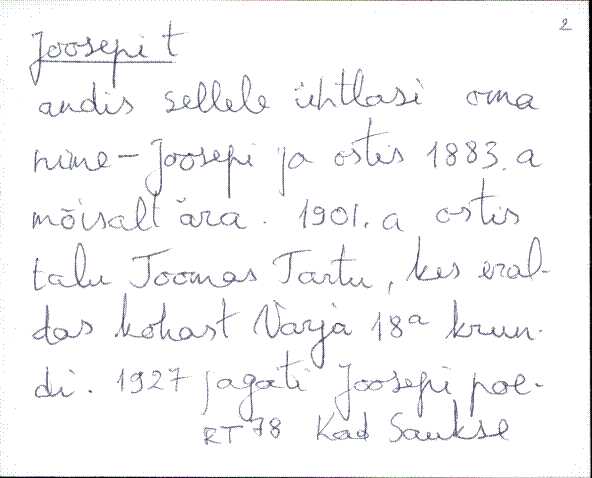 2
Joosepi t
andis sellele ühtlasi oma
nime - Joosepi ja ostis 1883. a
mõisalt ära. 1901. a ostis
talu Toomas Tartu, kes eral-
das kohast Varja 18a krun-
di. 1927 jagati Joosepi poe-
RT 78 Kad Saukse